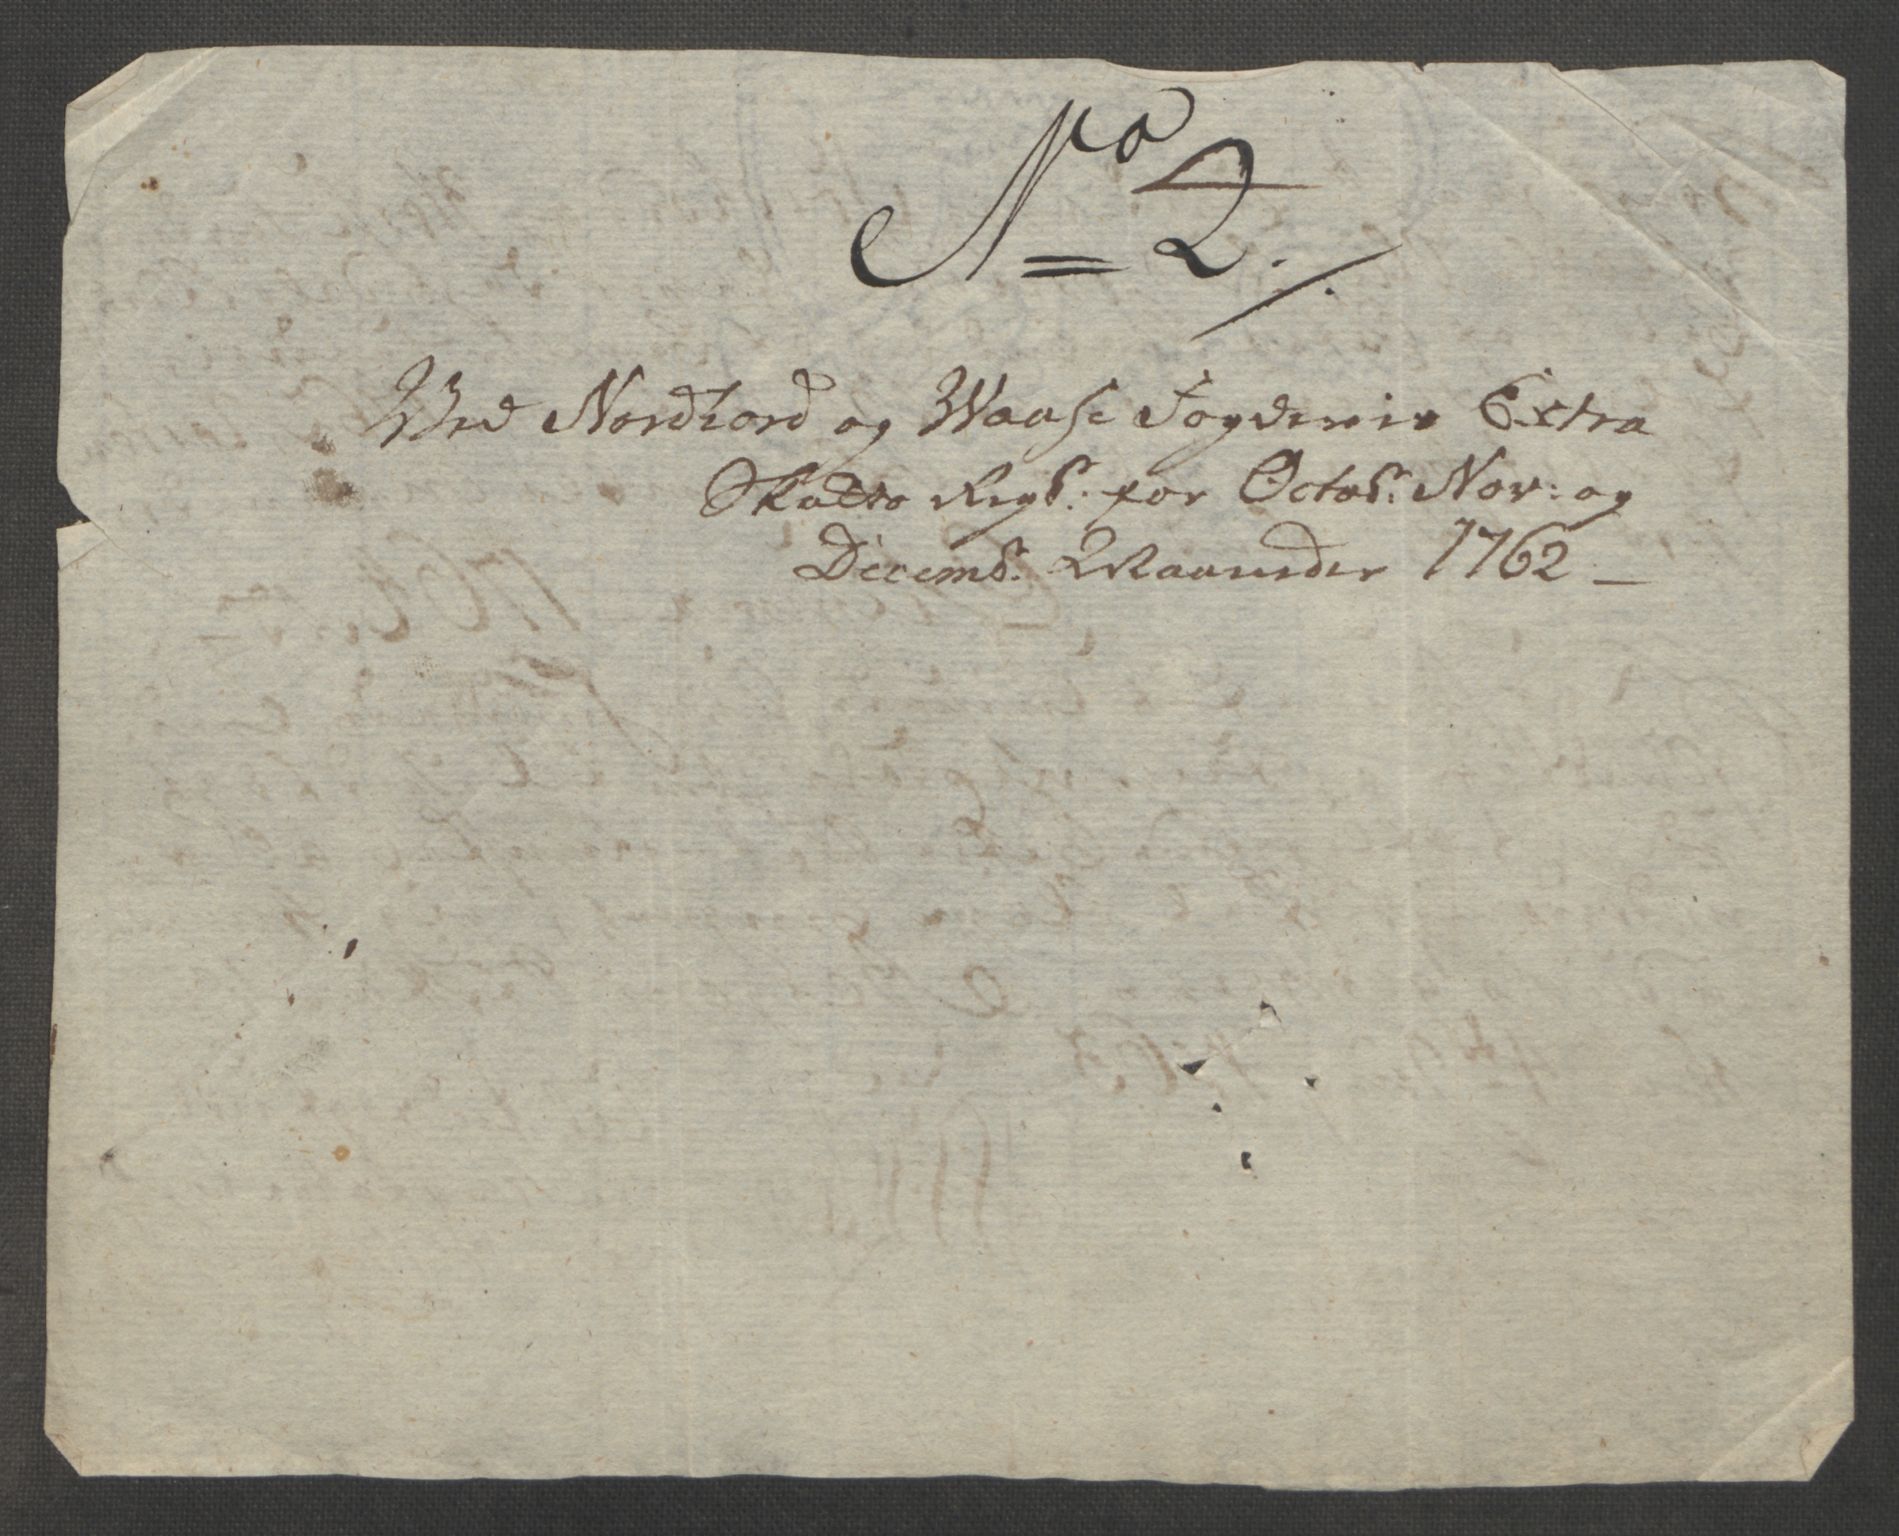 No 2.
Ved Nordhord og Waase Fogderie Extra
Skatts Regb: for Octob: Nov: og
Decemb: Maaneder 1762